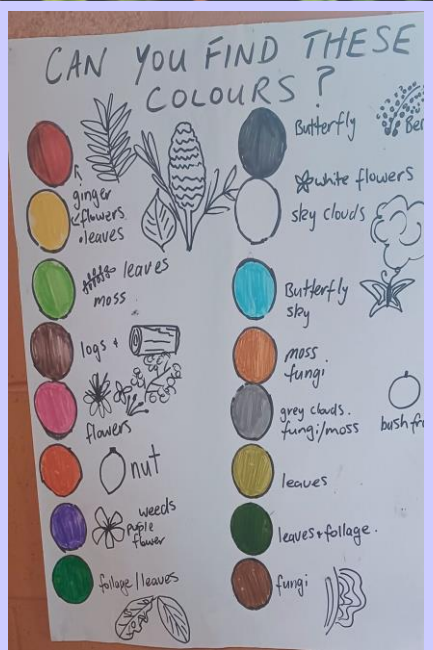 CAN YOU FIND THESE
COLOURS ?
ginger
flowers
leaves
leaves
moss
logs +
flowers
nut
weeds
puple
flower
follage/leaves
Butterfly
Ber
white flowers
sky clouds
Butterfly
sky
moss
fungi
grey clouds.
fungi/moss
bush fr
leaves
leaves+follage.
fungi